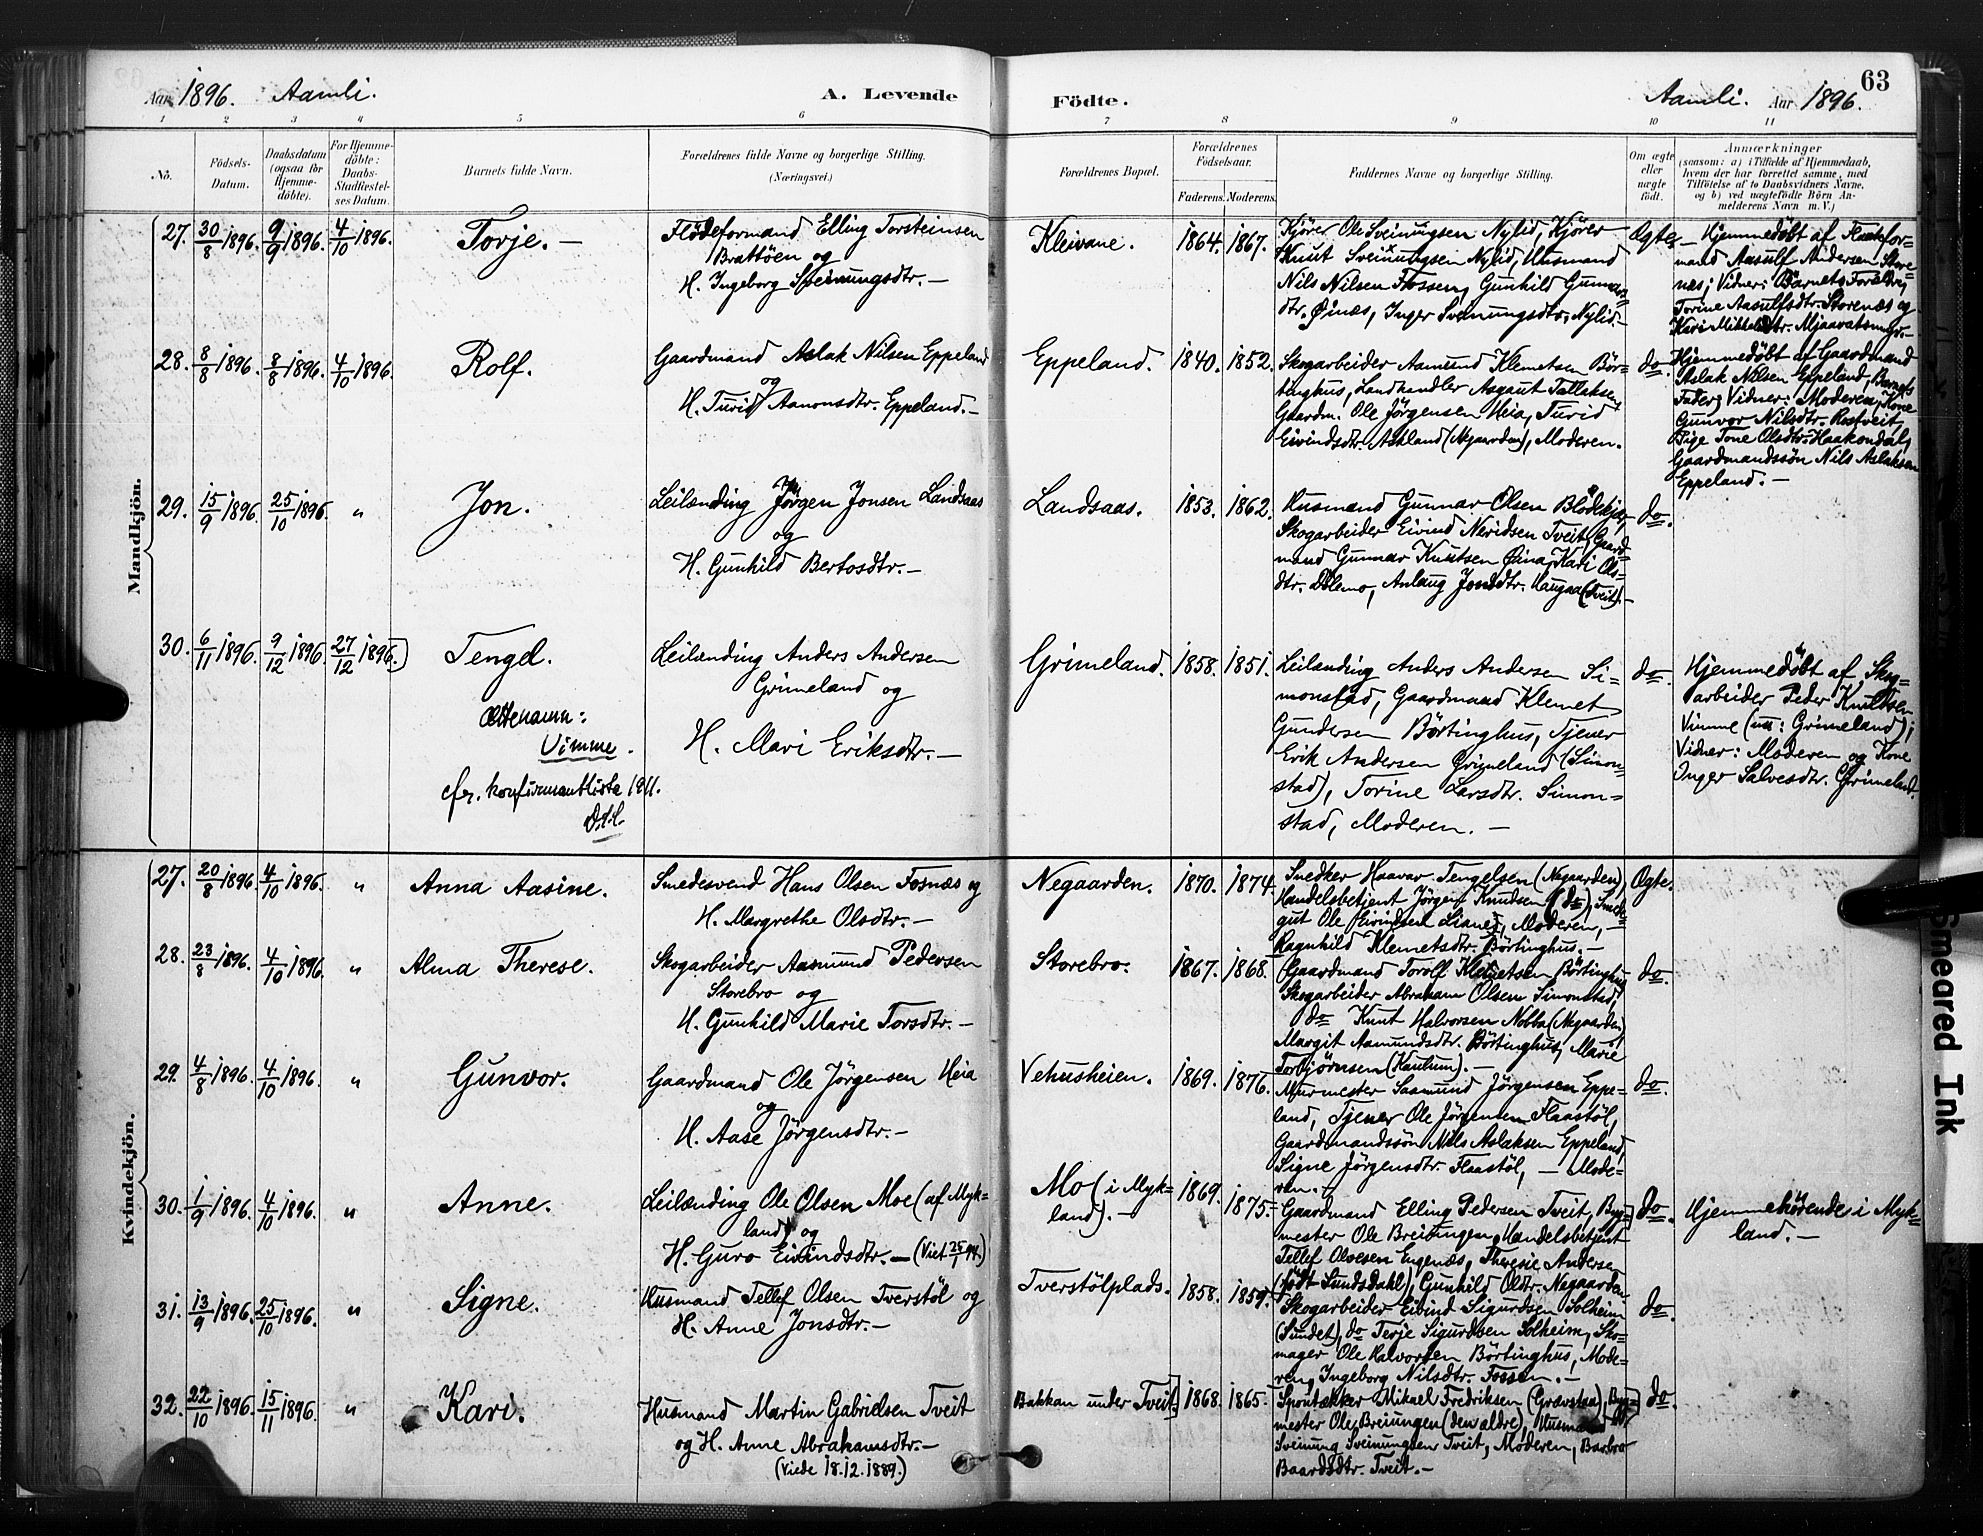 63
Aar 1896. Aamli. A. Levende Födte. Aamli. Aar 1896.
1 2 3 4 5 6 7 8 9 10 11
No. Födsels-Datum. Daabsdatum (ogsaa for Hjemmedöbte). For Hjemmedöbte: Daabs-Stadfæstelses Datum. Barnets fulde Navn. Forældrenes fulde Navne og borgerlige Stilling. (Næringsvei.) Forældrenes Bopæl. Forældrenes Födselsaar. Faderens. Moderens. Faddernes Navne og borgerlige Stilling. Om ægte eller uægte födt. Anmærkninger (saasom: a) i Tilfælde af Hjemmedaab, hvem der har forrettet samme, med Tilföielse af to Daabsvidners Navne, og b) ved uægtefödte Börn Anmelderens Navn m. V.)
Mandkjön.
27. 30/8 1896. 9/9 1896. 4/10 1896. Torje. — Flödeformand Elling Torsteinsen
Brattöen og
H. Ingeborg Sveinungsdtr. —
Kleivane. 1864. 1867.
Kjörer Ole Sveinungsen Nylid, Kjörer
Knut Sveinungsen Nylid, Husmand
Nils Nilsen Fossen, Gunhild Gunnars
dtr. Öinæs, Inger Sveinungsdtr. Nylid. —
Ægte.
Hjemmedöbt af
mand Aasulf Andersen Store=
næs; Vidner: Barnets Forældre,
Torine Aasulfsdtr. Storenæs og
28. 8/8 1896. 8/8 1896. 4/10 1896. Rolf. Gaardmand Aslak Nilsen Eppeland
og
H. Turid Aanonsdtr. Eppeland. —
Eppeland. 1840. 1852.
Skogarbeider Aamund Klemetsen Bör-
tinghus, Landhandler Asgaut Tallaksen,
Gaardm. Ole Jörgensen Heia, Turid
Eivindsdtr. Askland (Negaarden), Moderen.
do.
Hjemmedöbt af Gaardmand
Aslak Nilsen Eppeland, Barnets
Fader; Vidner: Moderen, Kone
Gunvor Nilsdtr.
Pige Tone Olsdtr. Haakondal,
Gaardmandssön Nils Aslaksen
Eppeland. —
29. 15/9 1896. 25/10 1896. " Jon. Leilænding Jörgen Jonsen Landsaas
og
H. Gunhild Bertosdtr. —
Landsaas. 1853. 1862.
Husmand Gunnar Olsen Blödekjær,
Skogarbeider Eivind Neridsen Tveit, Gaard=
mand Gunnar Knutsen Öina, Kari Ols=
dtr. Dölemo, Anlaug Jonsdtr. Haugaa (Tveit). —
do.
30. 6/11 1896. 9/12 1896. 27/12 1896.) Tengel. Leilænding Anders Andersen
Grimeland og
H. Mari Eriksdtr. —
Ættenavn:
Vimme.
cfr. konfirmantliste 1911.
Grimeland. 1858. 1851.
Leilænding Anders Andersen Si=
monstad, Gaardmand Klemet
Gundersen Börtinghus, Tjener
Erik Andersen Grimeland (Simon=
stad), Torine Larsdtr. Simon=
stad, Moderen. —
do.
Hjemmedöbt af Skog=
arbeider Peder Knudsen
Vimme (nu: Grimeland);
Vidner: Moderen og Kone
Inger Salvesdtr. Grimeland.
Kvindekjön.
27. 20/8 1896. 4/10 1896. " Anna Aasine. Smedesvend Hans Olsen Fosnæs og
H. Margrethe Olsdtr. —
Negaarden. 1870. 1874.
Snedker Haavar Tengelsen (Negaarden),
Handelsbetjent Jörgen Knudsen (do),
gut Ole Eivindsen Lianes, Moderen, —
Ragnhild Klemetsdtr. Börtinghus. —
Ægte.
28. 23/8 1896. 4/10 1896. " Alma Therese. Skogarbeider Aasmund Pedersen
Storebro og
H. Gunhild Marie Torsdtr. —
Storebro. 1867. 1868.
Gaardmand Torolf Klemetsen Börtinghus,
Skogarbeider Abraham Olsen Simonstad,
do Knut Halvorsen Nobba (Negaarden)
Margit Aamundsdtr. Börtinghus, Marie
Torbjörnsen (Kaulum). —
do.
29. 4/8 1896. 4/10 1896. " Gunvor. Gaardmand Ole Jörgensen Heia
og
H. Aase Jörgensdtr. —
Vehusheien. 1869. 1876.
Murmester Aasmund Jörgensen Eppe=
land, Tjener Ole Jörgensen Flaastöl,
Gaardmandssön Nils Aslaksen Eppeland,
Signe Jörgensdtr. Flaastöl, — Mode=
ren. —
do.
30. 1/9 1896. 4/10 1896. " Anne. Leilænding Ole Olsen Moe (af Myk=
land) og
H. Guro Eivindsdtr. — (Viet 25/7 94.)
Mo (i Myk=
land). — 1869. 1875.
Gaardmand Elling Pedersen Tveit, Byg=
mester Ole Breiungen, Handelsbetjent
Tellef Olvesen Engenæs, Theresie Andersen
(födt Sundsdahl), Gunhild Oldtr. Negaarden
do.
Hjemmehörende i Myk=
land. —
31. 13/9 1896. 25/10 1896. " Signe. Husmand Tellef Olsen Tverstöl og
H. Anne Jonsdtr. —
Tverstölplads. 1858. 1859.
Skogarbeider Eivind Sigurdsen Solheim
(Sundet), do Terje Sigurdsen Solheim, Sko=
mager Ole Halvorsen Börtinghus, Mode=
ren, Ingeborg Nilsdtr. Fossen. —
do.
32. 22/10 1896. 15/11 1896. " Kari. Husmand Martin Gabrielsen Tveit
og H. Anne Abrahamsdtr. —
(Viede 18.12.1889.)
Bakkan under Tveit. 1868. 1865.
Mikael Fredriksen (Gravstaa), Byg=
mester Ole Breiungen (den ældre), Husmand
Sveinung Sveinungsen Tveit, Moderen, Barbro
Baardsdtr. Tveit. —
do.
Smeared Ink